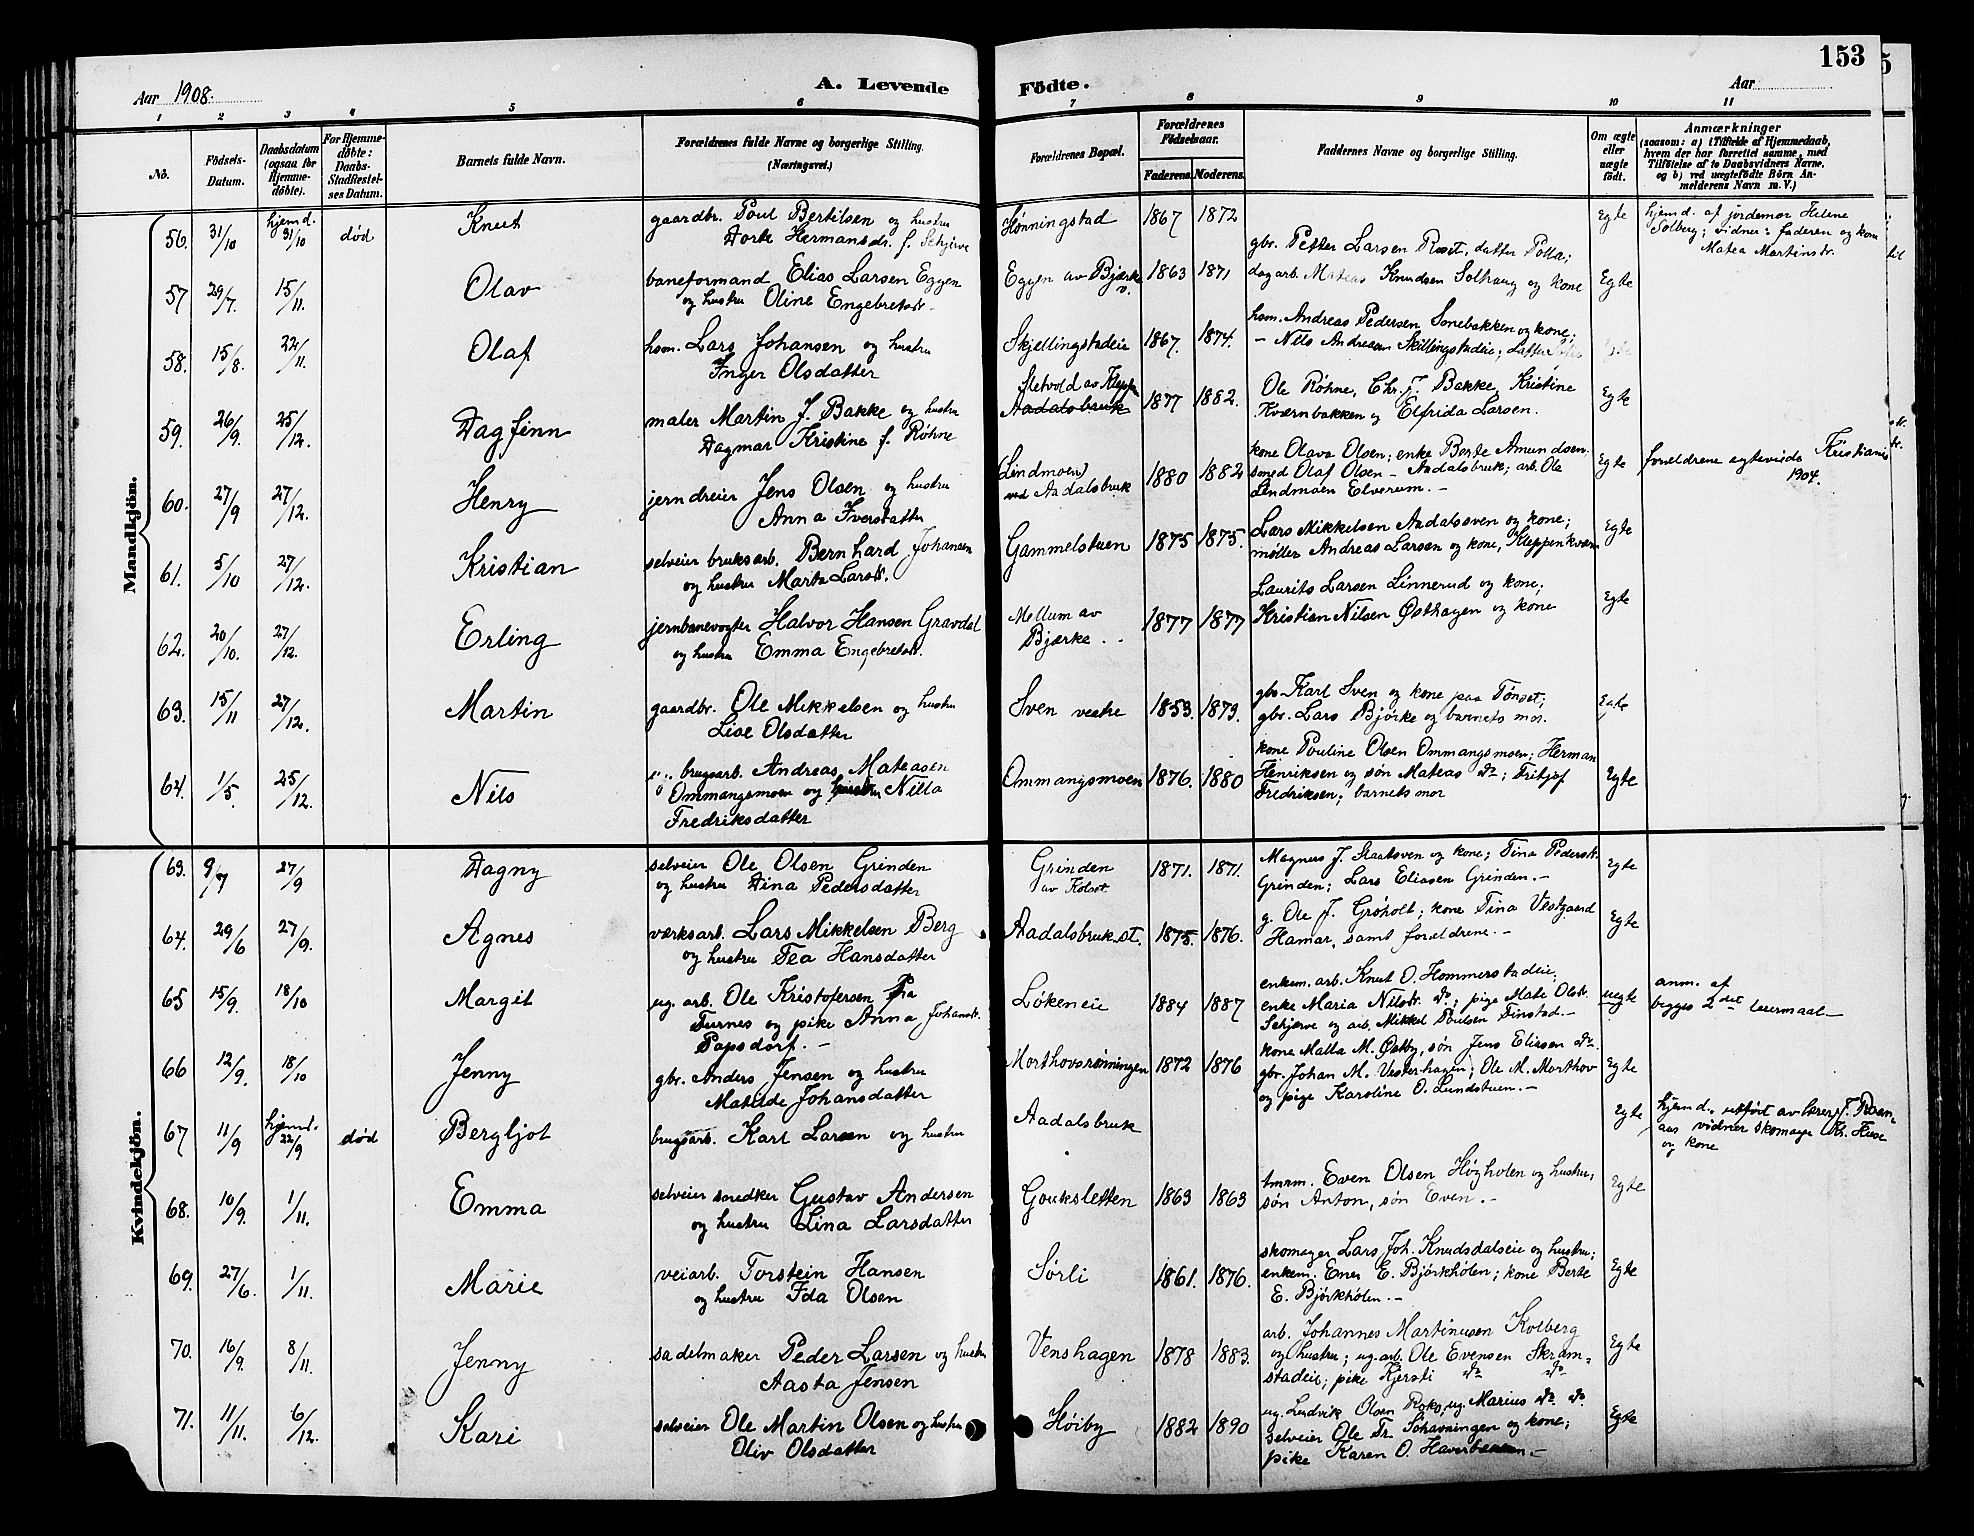 153
Aar 1908.
A. Levende Födte.
Aar
1 2 3 4 5 6 7 8 9 10 11
No.
Födsels-Datum.
Daabsdatum (ogsaa for Hjemme-döbte).
For Hjemme-döbte: Daabs-Stadfæstel-ses Datum.
Barnets fulde Navn.
Forældrenes fulde Navne og borgerlige Stilling. (Næringsvei.)
Forældrenes Bopæl.
Forældrenes Födselsaar.
Faderens. Moderens.
Faddernes Navne og borgerlige Stilling.
Om ægte eller uægte födt.
Anmærkninger
(saasom: a) i Tilfælde af Hjemmedaab,
hvem der har forrettet samme, med
Tilföielse af to Daabsvidners Navne,
og b) ved uægtefödte Börn An-
melderens Navn m. V.)
Mandkjön.
56. 31/10 hjemd. 31/10 död Knut
gaardbr. Poul Bertilsen og hustru
Dorte Hermansdr. f. Schjerve
Hönningstad 1867 1872 Egte
hjemd. af jordemor Helene
Solberg; vidner: faderen og kone
Matea Martinsdr.
57 29/7. 15/11. Olav
baneformand Elias Larsen Eggen
og hustru Oline Engebretsdtr.
Eggen av Bjærke v. 1863 1871
gbr. Petter Larsen Røst, datter Polla;
dagarb. Mateas Knudsen Solhaug og kone Egte
58. 15/8. 22/11. Olaf
hsm. Lars Johansen og hustru
Inger Olsdatter
Skjellingstadeie 1867. 1874.
hsm. Andreas Pedersen Sonebakken og kone;
– Nils Andreasen Skillingstadeie;
59. 26/9. 25/12. Dagfinn
maler Martin J. Bakke og hustru
Dagmar Kristine f. Röhne
Sletvold av Kleppe
Aadalsbruk 1877 1882.
Ole Röhne, Chr. J. Bakke, Kristine
Kværnbakken og Elfrida Larsen. Egte
60. 27/9 27/12. Henry
jerndreier Jens Olsen og hustru
Anna Iversdatter
(Lindmoen)
ved Aadalsbruk 1880 1882
kone Olava Olsen; enke Berte Amundsen
smed Olaf Olsen – Aadalsbruk; arb. Ole
Lindmoen Elverum. – Egte
forældrene egteviede Kristiania
1904.
61. 5/10 27/12. Kristian
selveier bruksarb. Bernhard Johansen
og hustru Marta Larsdtr.
Gammelstuen 1875 1875.
Lars Mikkelsen Aadalssven og kone;
møller Andreas Larsen og kone, Kleppenkværn Egte
62. 20/10. 27/12. Erling
jernbanevogter Halvor Hansen Gravdal
og hustru Emma Engebretsdtr.
Mellum av
Bjærke. 1877 1877
Laurits Larsen Linnerud og kone;
Kristian Nilsen Østhagen og kone Egte
63. 15/11 27/12. Martin
gaardbr. Ole Mikkelsen og hustru
Lise Olsdatter
Sven vestre 1853. 1873.
gbr. Karl Sven og kone paa Tönset;
gbr. Lars Björke og barnets mor. Egte
64. 1/5 25/12. Nils
brugsarb. Andreas Mateasen
Ommangsmoen og hustru Nilla
Fredriksdatter
Ommangsmoen 1876. 1880
kone Pouline Olsen Ommangsmoen; Herman
Henriksen og søn Mateas do; Fritjof
Fredriksen; barnets mor Egte
Kvindekjön.
63. 9/7 27/9 Dagny
selveier Ole Olsen Grinden
og hustru Dina Pedersdatter
Grinden
av Kolset 1871. 1871.
Magnus J. Staatsven og kone; Tina Pedersdtr.
Grinden; Lars Eliasen Grinden. – Egte
64. 29/6 27/9. Agnes
værksarb. Lars Mikkelsen Berg
og hustru Tea Hansdatter
Aadalsbruk st. 1875. 1876.
g. Ole J. Gröholt; kone Tina Vestgaard
Hamar, samt forældrene. – Egte
65 15/9. 18/10 Margit
ug. arb. Ole Kristofersen fra
Furnes og pike Anna Johansdtr.
Papsdorf. –
Lökeneie 1884 1887
enkem. arb. Knut O. Hommerstadeie;
enke Maria Nilsdtr. do; pige Mate Olsdtr.
Schjerve og arb. Mikkel Poulsen Finstad. – uegte
anm. af
begges 2det leiermaal –
66 12/9. 18/10 Jenny
gbr. Anders Jensen og hustru
Matilde Johansdatter
Morthovsrönningen 1872 1876
kone Malla M. Østby, søn Jens Eliasen do.
gbr. Johan M. Vesterhagen; Ole M. Morthov
og pige Karoline O. Lundstuen. – Egte
67 11/9 hjemd. 22/9 död Bergljot
brugsarb. Karl Larsen og hustru
Aadalsbruk Egte
hjemd. utført av lærer J. Roan-
aas vidner skomager Kr. Huse
og kone
68. 10/9. 1/11. Emma
selveier snedker Gustav Andersen
og hustru Lina Larsdatter
Gouksletten 1863 1863
tmrm. Even Olsen Högholen og hustru;
sön Anton, sön Even. – Egte
69. 27/6. 1/11. Marie
veiarb. Torstein Hansen
og hustru Ida Olsen
Sörli 1861. 1876.
skomager Lars Joh. Knudsdalseie og hustru;
enkem. Ener E. Björkhölen; kone Berte
E. Björkhölen. – Egte
70. 16/9. 8/11. Jenny
sadelmaker Peder Larsen og hustru
Aasta Jensen
Venshagen 1878 1883.
arb. Johannes Martinusen Kolberg
og hustru; ug. arb. Ole Evensen Skram-
stadeie; pike Kjersti do do Egte
71. 11/11. 6/12. Kari
selveier Ole Martin Olsen og hustru
Oliv Olsdatter
Höiby 1882 1890
ug. Ludvik Olsen Roko, ug. Marius do. do
selveier Ole Tr. Schavningen og kone;
pike Karen O. – Egte